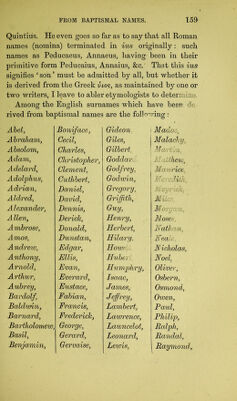 FROM BAPTISMAL NAMES. 159
Quintius. He even goes so far as to say that all Roman
names (nomina) terminated in ius originally : such
names as Peducaeus, Annaeus, having been in their
primitive form Peducaius, Annaius, &c. That this ius
signifies ‘son’ must be admitted by all, but whether it
is derived from the Greek ὑιος, as maintained by one or
two writers, I leave to abler etymologists to determine.
Among the English surnames which have been de-
rived from baptismal names are the following :
Abel,
Abraham,
Absolom,
Adam,
Adelard,
Adolphus,
Adrian,
Aldred,
Alexander,
Allen,
Ambrose,
Amos,
Andrew,
Anthony,
Arnold,
Arthur,
Aubrey,
Bardolf,
Baldwin,
Barnard,
Bartholomew,
Basil,
Benjamin,
Boniface,
Cecil,
Charles,
Christopher,
Clement,
Cuthbert,
Daniel,
David,
Dennis,
Derick,
Donald,
Dunstan,
Edgar,
Ellis,
Evan,
Everard,
Eustace,
Fabian,
Francis,
Frederick,
George,
Gerard,
Gervaise,
Gideon
Giles,
Gilbert
Goddard
Godfrey,
Godwin,
Gregory,
Griffith,
Guy,
Henry,
Herbert,
Hilary,
Howel
Hubert
Humphry,
Isaac,
James,
Jeffrey,
Lambert,
Lawrence,
Launcelot,
Leonard,
Lewis,
Madoc,
Malachy,
Martin
Matthew,
Maurice,
Meredith,
Meyrick,
Miles,
Morgan,
Moses,
Nathan,
Neale,
Nicholas,
Noel,
Oliver,
Osbern,
Osmond,
Owen,
Paul,
Philip,
Ralph,
Randal,
Raymond,